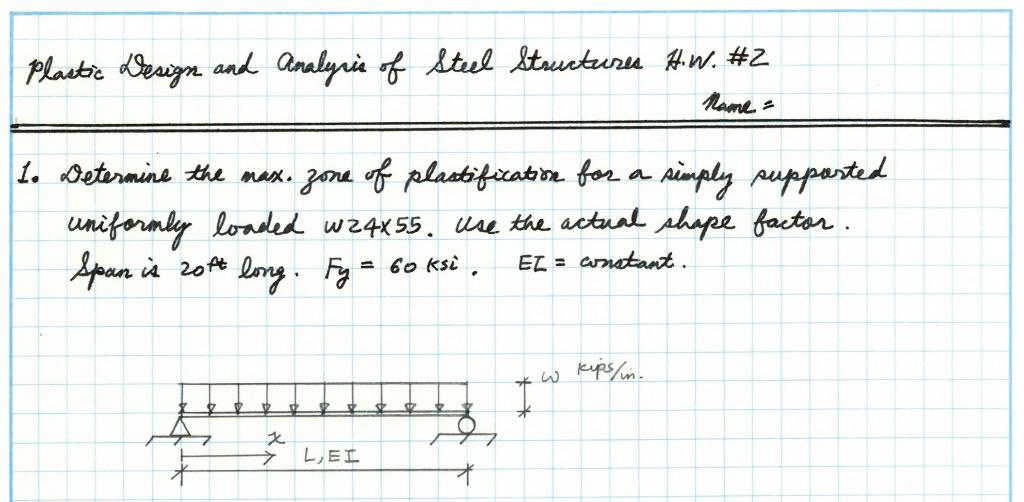 Plastic Design and Analysis of Steel Structures H.W. #2
Name =
1. Determine the max. zone of plastification for a simply supported
uniformly loaded W24x55. Use the actual shape factor.
Span is 20ft long. Fy = 60 ksi. EI = constant.
w kips/in.
x
L, EI